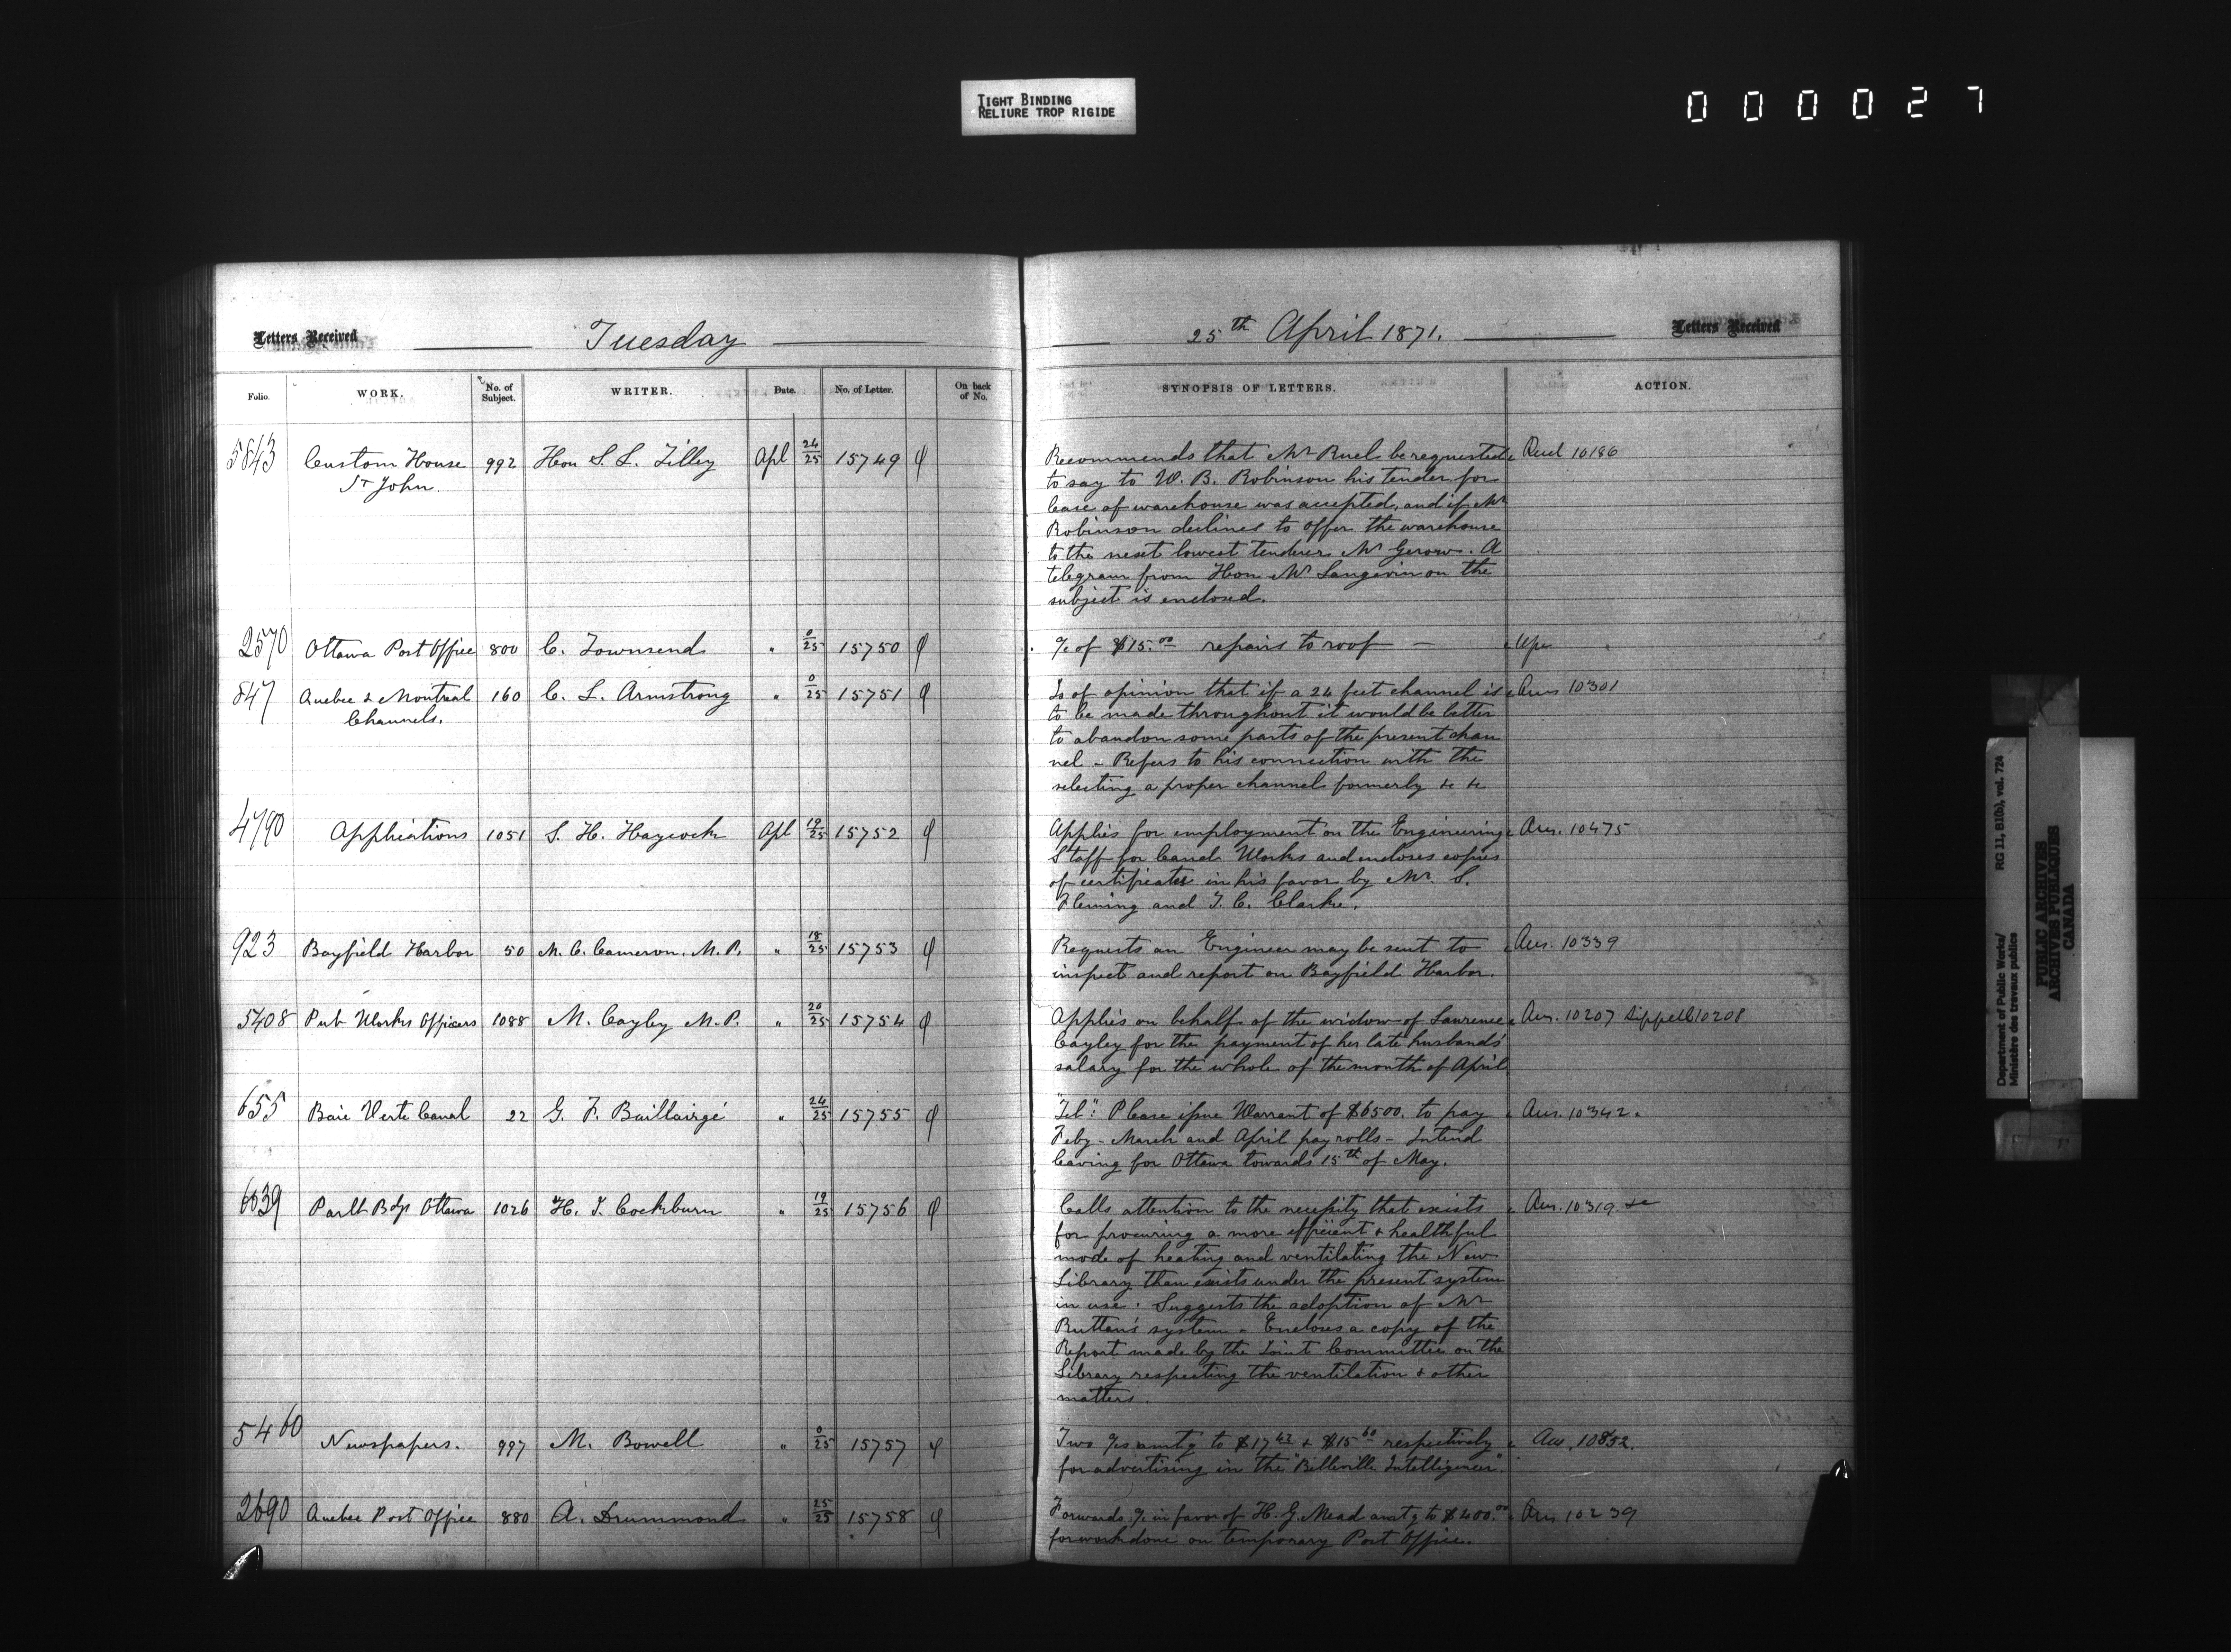 TIGHT BINDING
RELIURE TROP RIGIDE
000027
Letters Received
Tuesday
25th April 1871.
Letters Received
Folio. WORK. No. of Subject. WRITER. Date. No. of Letter. On back of No. SYNOPSIS OF LETTERS. ACTION.
5843 Custom House 992 Hon S. L. Tilley Apl 24/25 15749 Recommends that Mr Ruel be requested 10186
St John. to say to W. B. Robinson his tender for
lease of warehouse was accepted, and if Mr
Robinson declines to offer the warehouse
to the next lowest tenderer Mr Gerow. A
telegram from Hon Mr Langevin on the
subject is enclosed.
2570 Ottawa Post Office 800 C. Townsend " 0/25 15750 of $15.00 repairs to roof —
847 Quebec & Montreal 160 C. L. Armstrong " 0/25 15751 Is of opinion that if a 24 feet channel is Ans 10301
Channels. to be made throughout it would be better
to abandon some parts of the present chan
nel – Refers to his connection with the
selecting a proper channel formerly &c &c
4790 Applications 1051 S. H. Haycock Apl 19/25 15752 Applies for employment on the Engineering Ans. 10475
Staff for Canal Works and encloses copies
of certificates in his favor by Mr. S.
Fleming and T. C. Clarke.
923 Bayfield Harbor 50 M. C. Cameron. M.P. " 18/25 15753 Requests an Engineer may be sent to Ans. 10339
inspect and report on Bayfield Harbor.
5408 Pub Works Officers 1088 M. Cayley M.P. " 20/25 15754 Applies on behalf of the widow of Lawrence Ans. 10207 Sippell 10208
Cayley for the payment of her late husbands'
salary for the whole of the month of April
655 Baie Verte Canal 22 G. F. Baillairgé " 24/25 15755 "Tel": Please issue Warrant of $6500. to pay Ans. 10342.
Feby – March and April pay rolls – Intend
leaving for Ottawa towards 15th of May.
6039 Parlt Bdgs Ottawa 1026 H. T. Cockburn " 19/25 15756 Calls attention to the necessity that exists Ans. 10319 &c
for procuring a more efficient & healthful
mode of heating and ventilating the New
Library than exists under the present system
in use. Suggests the adoption of Mr
Ruttan's system – Encloses a copy of the
Report made by the Joint Committee on the
Library respecting the ventilation & other
matters.
5460 Newspapers. 997 M. Bowell " 0/25 15757 Two amtg to & $15.60 respectively Ans. 10832.
for advertising in the "Belleville Intelligencer".
2690 Quebec Post Office 880 A. Drummond " 25/25 15758 Forwards in favor of H. G. Mead amtg to $400.00 Ans 10239
for work done on temporary Post Office.
Department of Public Works/ RG 11, B1(b), vol. 724
Ministère des travaux publics
PUBLIC ARCHIVES
ARCHIVES PUBLIQUES
CANADA